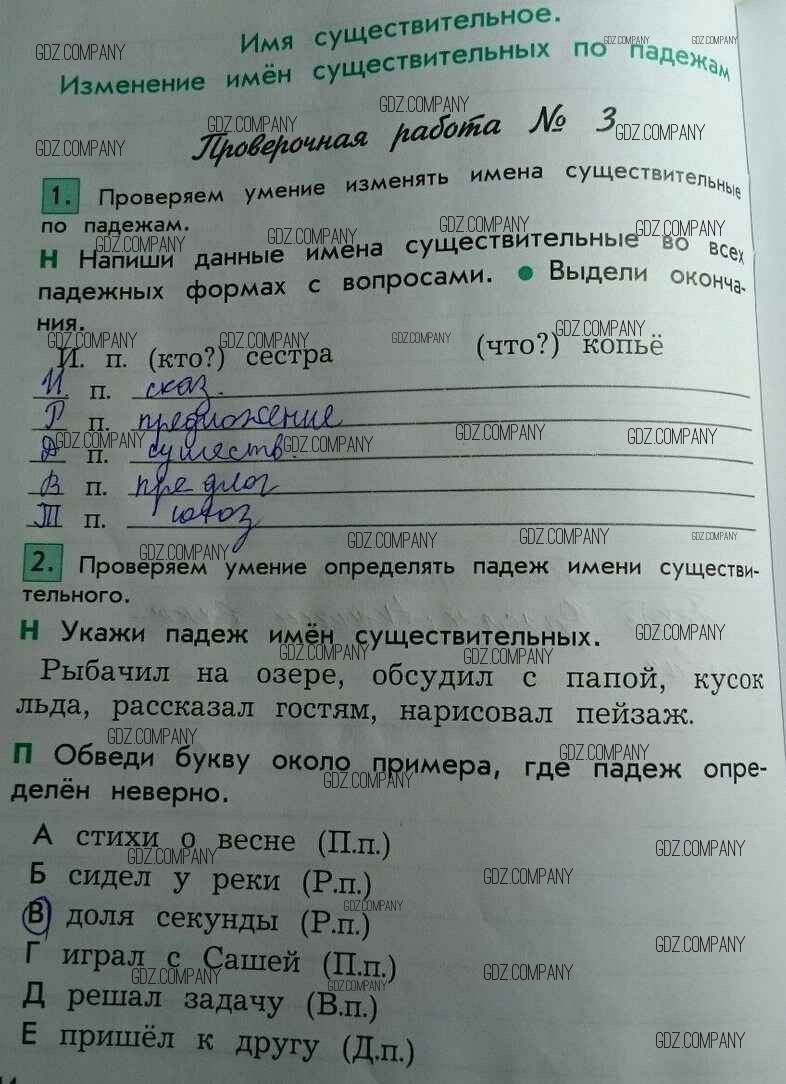 Имя существительное.
Изменение имён существительных по падежам
Проверочная работа № 3
1. Проверяем умение изменять имена существительные
по падежам.
Н Напиши данные имена существительные во всех
падежных формах с вопросами. • Выдели оконча-
ния.
И. п. (кто?) сестра (что?) копьё
И. п. сказ.
Р п. предложение
Д п. существ.
В п. предлог
Т п. союз
2. Проверяем умение определять падеж имени существи-
тельного.
Н Укажи падеж имён существительных.
Рыбачил на озере, обсудил с папой, кусок
льда, рассказал гостям, нарисовал пейзаж.
П Обведи букву около примера, где падеж опре-
делён неверно.
А стихи о весне (П.п.)
Б сидел у реки (Р.п.)
В доля секунды (Р.п.)
Г играл с Сашей (П.п.)
Д решал задачу (В.п.)
Е пришёл к другу (Д.п.)
GDZ.COMPANY